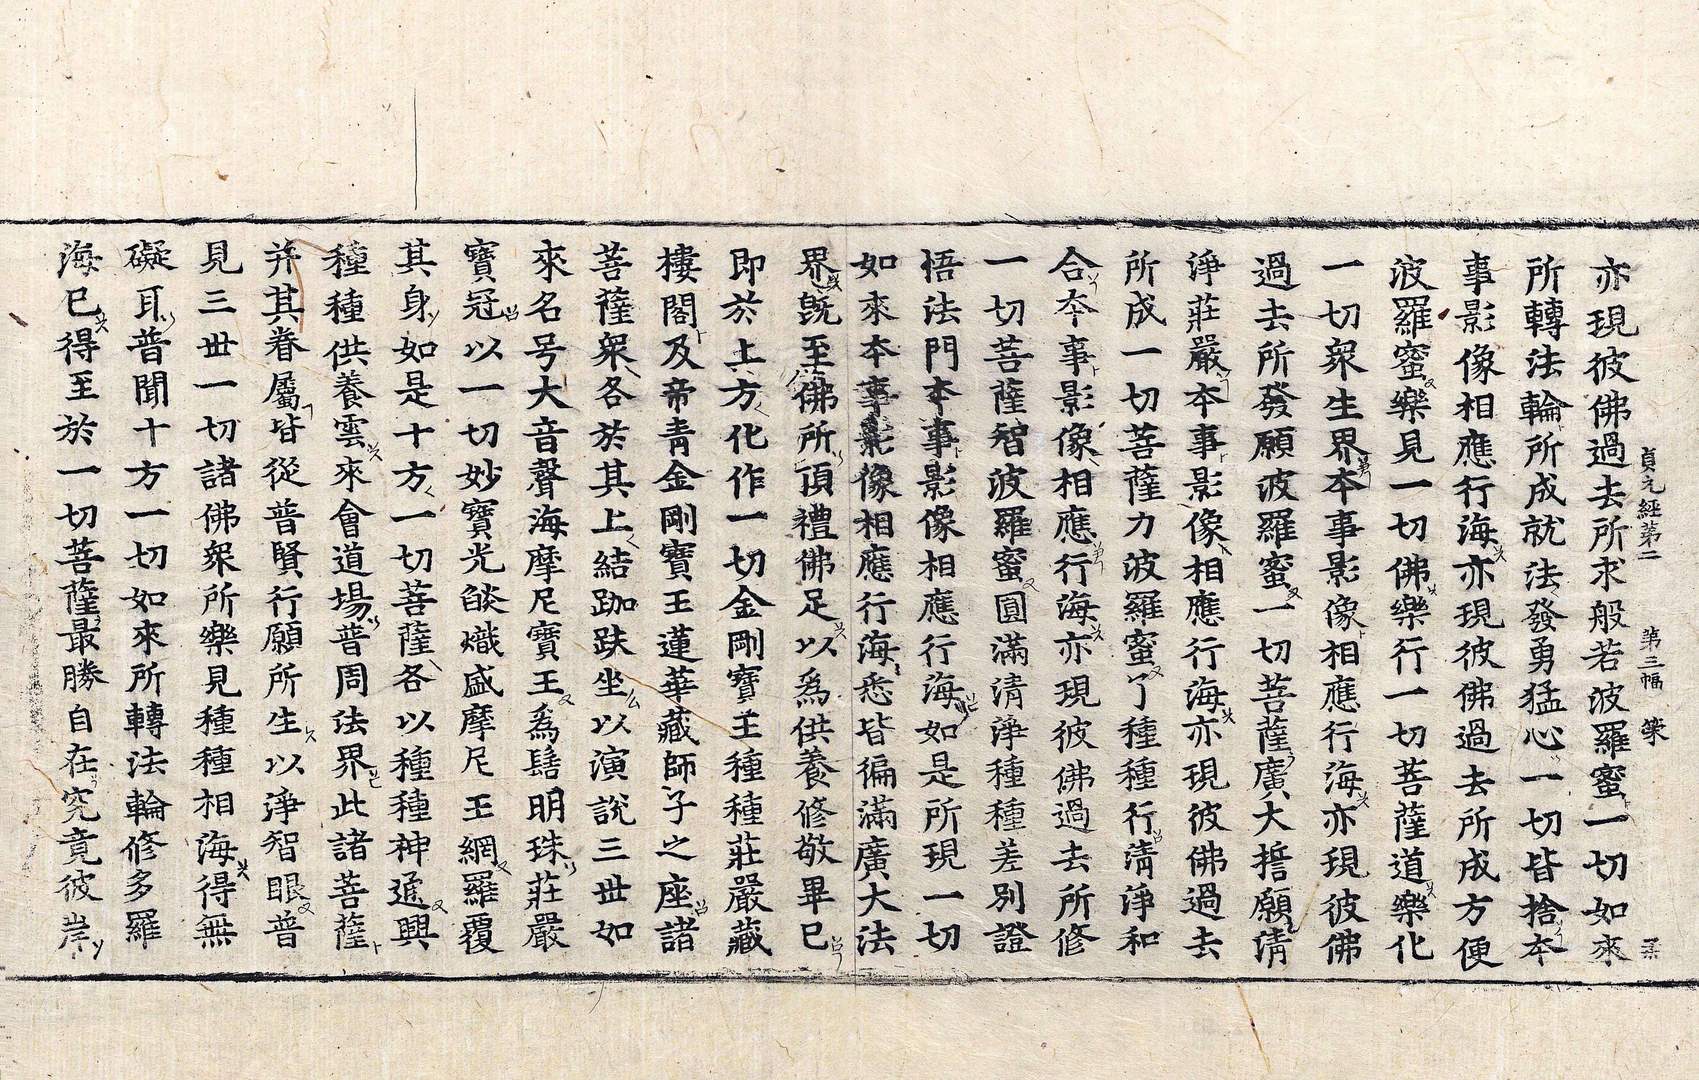 貞元經第二 第三幅
亦現彼佛過去所求般若波羅蜜一切如來
所轉法輪所成就法發勇猛心一切皆捨本
事影像相應行海亦現彼佛過去所成方便
波羅蜜樂見一切佛樂行一切菩薩道樂化
一切衆生界本事影像相應行海亦現彼佛
過去所發願波羅蜜一切菩薩廣大誓願清
淨莊嚴本事影像相應行海亦現彼佛過去
所成一切菩薩力波羅蜜了種種行清淨和
合本事影像相應行海亦現彼佛過去所修
一切菩薩智波羅蜜圓滿清淨種種差別證
悟法門本事影像相應行海如是所現一切
如來本事影像相應行海悉皆徧滿廣大法
界旣至佛所頂禮佛足以爲供養修敬畢已
即於上方化作一切金剛寶王種種莊嚴藏
樓閣及帝青金剛寶王蓮華藏師子之座諸
菩薩衆各於其上結跏趺坐以演說三世如
來名号大音聲海摩尼寶王爲髻明珠莊嚴
寶冠以一切妙寶光燄熾盛摩尼王網羅覆
其身如是十方一切菩薩各以種種神通興
種種供養雲來會道場普周法界此諸菩薩
并其眷屬皆從普賢行願所生以淨智眼普
見三世一切諸佛衆所樂見種種相海得無
礙耳普聞十方一切如來所轉法輪修多羅
海已得至於一切菩薩最勝自在究竟彼岸